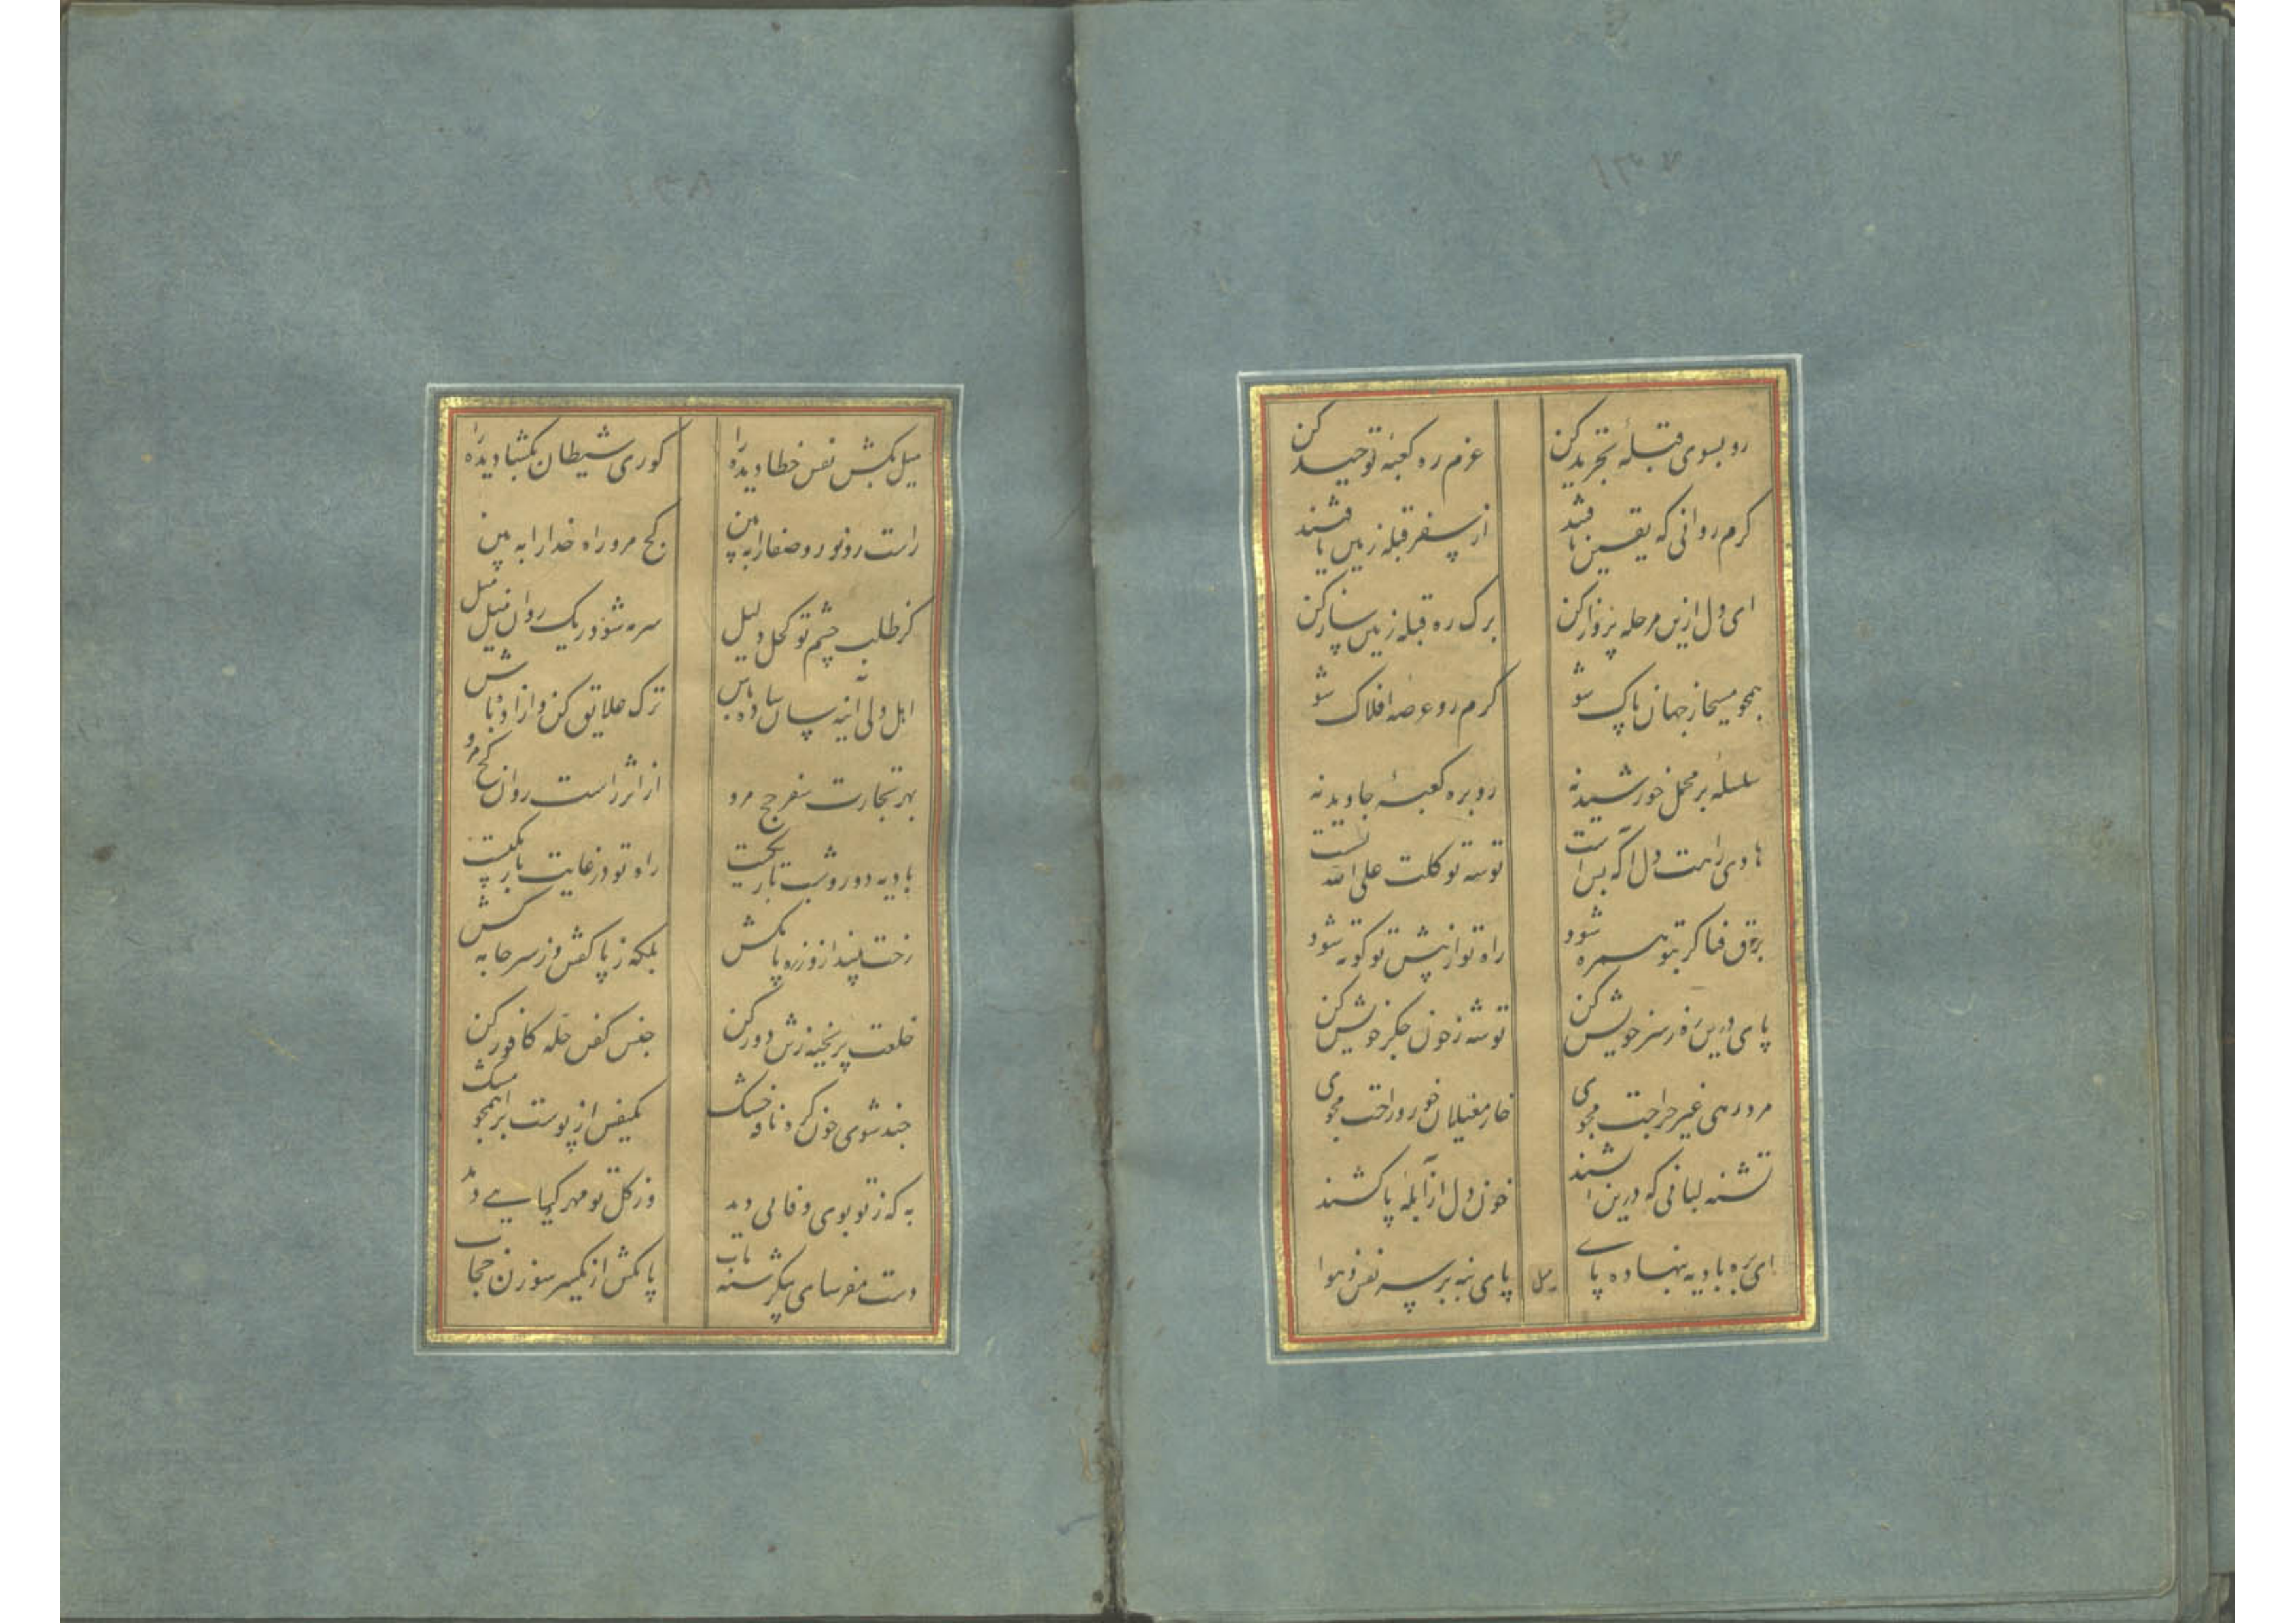 ۱۳۷
رو بسوی قبلهٔ تجرید کن عزم ره کعبهٔ توحید کن
کرم روانی که یقین یافتند از سفر قبله زمین یافتند
ای دل ازین مرحله پرواز کن برک ره قبله زمین ساز کن
همچو مسیحا ز جهان پاک شو کرم رو عرصه افلاک شو
سلسله بر محمل خورشید نه رو بره کعبهٔ جاوید نه
هادی راهت دل آکه بس است توشه توکلت علی الله
برق فنا کر بتو همره شود راه تو از پیش تو کوته شود
پای درین ره ز سر خویش کن توشه ز خون جکر خویش کن
مرد رهی غیر جراحت مجوی خار مغیلان خور و راحت مجوی
تشنه لبانی که درین خون دل از آبلهٔ پا کشند
ای بره بادیه بنهاده پای پای بنه بر سر نفس و هوا
میل
۱۳۸
میل بکش نفس خطا دیده را کوری شیطان بکشا دیده را
راست رو نور و صفا را ببین کج مرو راه خدا را ببین
کز طلب چشم تو کحل دلیل سرمه شود ریک روان میل میل
اهل دلی آینه سان ساده باش ترک علایق کن و آزاده باش
بهر تجارت سفر حج مرو از اثر راست روان کج مرو
بادیه دور و شب تاریک راه تو در غایت باریکیست
رخت بیند از و ز ره پا مکش بلکه ز پا کفش و ز سر جامه کش
خلعت پر بخیه ز تن دور کن جنس کفن حله کافور کن
چند شوی خون کره و نافه خشک یکنفس از پوست برا همچو مشک
به که ز تو بوی وفایی دمد وز کل تو مهر کیایی دمد
دست مفرسای بیکر پا مکش از یکسر سوزن حجاب